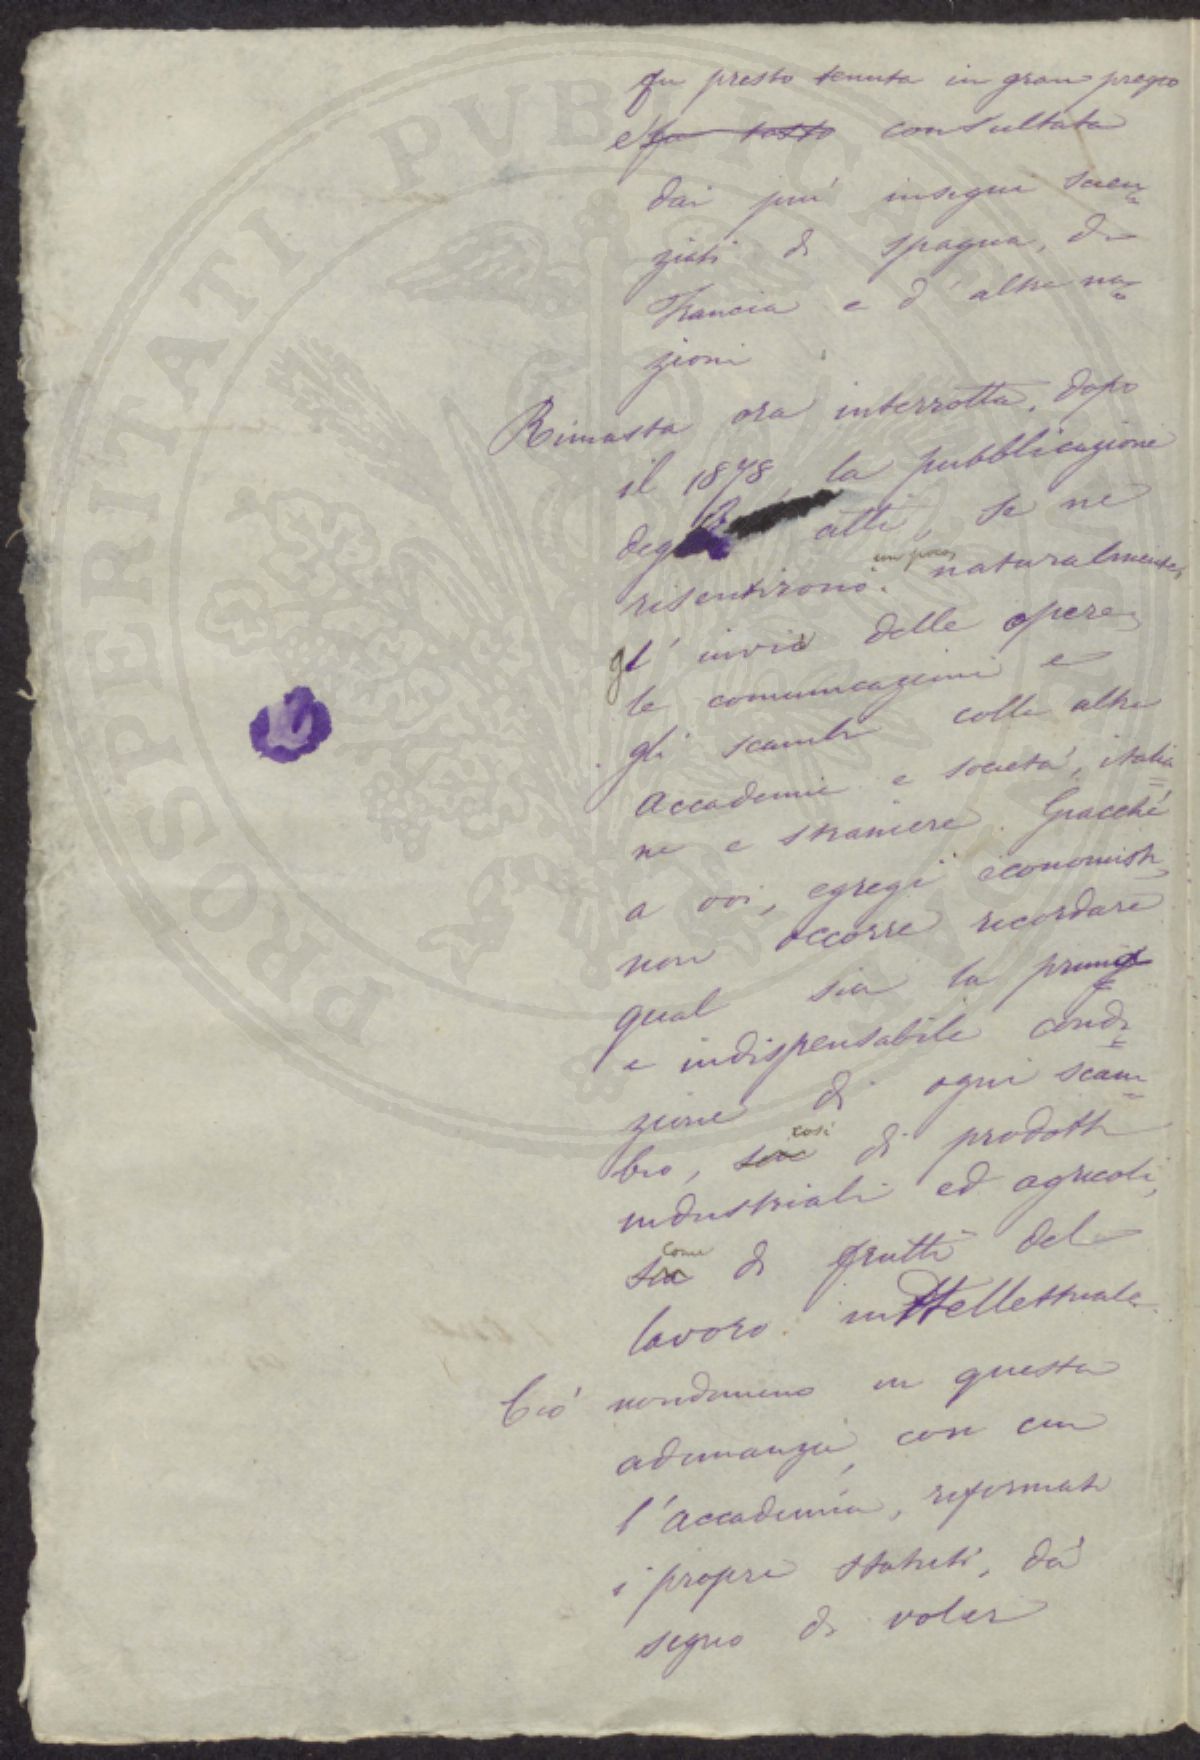 fu presto tenuta in gran pregio
e fu tosto consultata
dai piú insegni scien=
ziati di Spagna, di
Francia e d'altre na=
zioni
Rimasta ora interrotta, dopo
il 1878, la pubblicazione
degli atti, se ne
risentirono un poco, naturalmente,
gl'invii delle opere,
le comunicazioni e
gli scambi colle altre
Accademie e societá, italia=
ne e straniere. Giacché
a voi, egregi economisti,
non occorre ricordare
qual sia la prima
e indispensabile condi=
zione di ogni scam=
bio, sia così di prodotti
industriali ed agricoli,
sia come di frutti del
lavoro intellettuale.
Ció nondimeno in questa
adunanza, con cui
l'Accademia, riformati
i propri statuti, dá
segno di voler
PROSPERITATI PVBLICAE